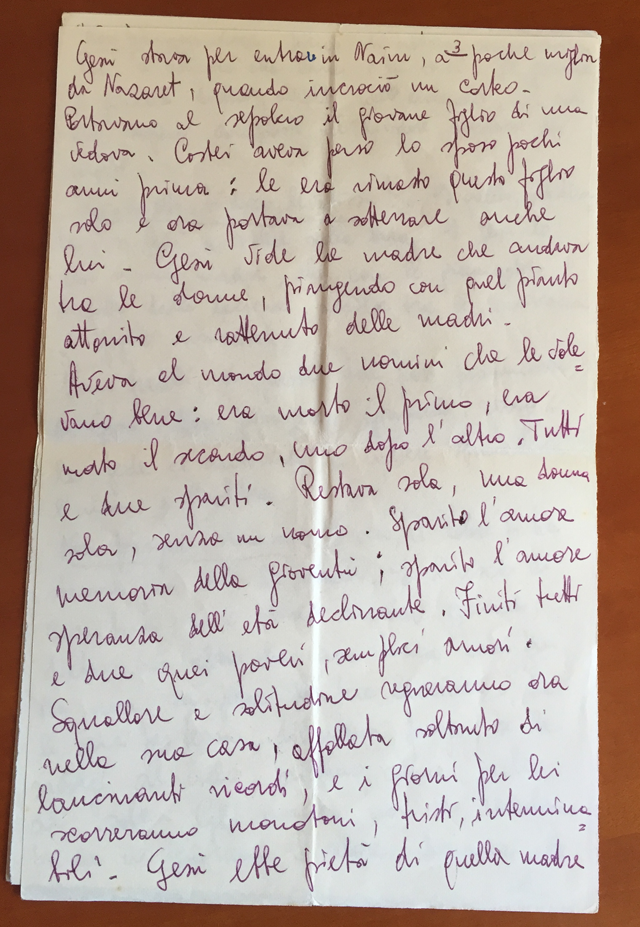 Gesù stava per entrare in Naim, a 3 poche miglia
da Nazaret, quando incrociò un corteo.
Portavano al sepolcro il giovane figlio di una
vedova. Costei aveva perso lo sposo pochi
anni prima: le era rimasto questo figlio
solo e ora portava a sotterrare anche
lui - Gesù vide la madre che andava
tra le donne, piangendo con quel pianto
attonito e rattenuto delle madri -
Aveva al mondo due uomini che le vole=
vano bene: era morto il primo, era
morto il secondo, uno dopo l'altro. Tutti
e due spariti. Restava sola, una donna
sola, senza un uomo. Sparito l'amore
memoria della gioventù; sparito l'amore
speranza dell'età declinante. Finiti tutti
e due quei poveri, semplici amori.
Squallore e solitudine regneranno ora
nella sua casa, affollata soltanto di
lancinanti ricordi, e i giorni per lei
scorreranno monotoni, tristi, intermina=
bili - Gesù ebbe pietà di quella madre